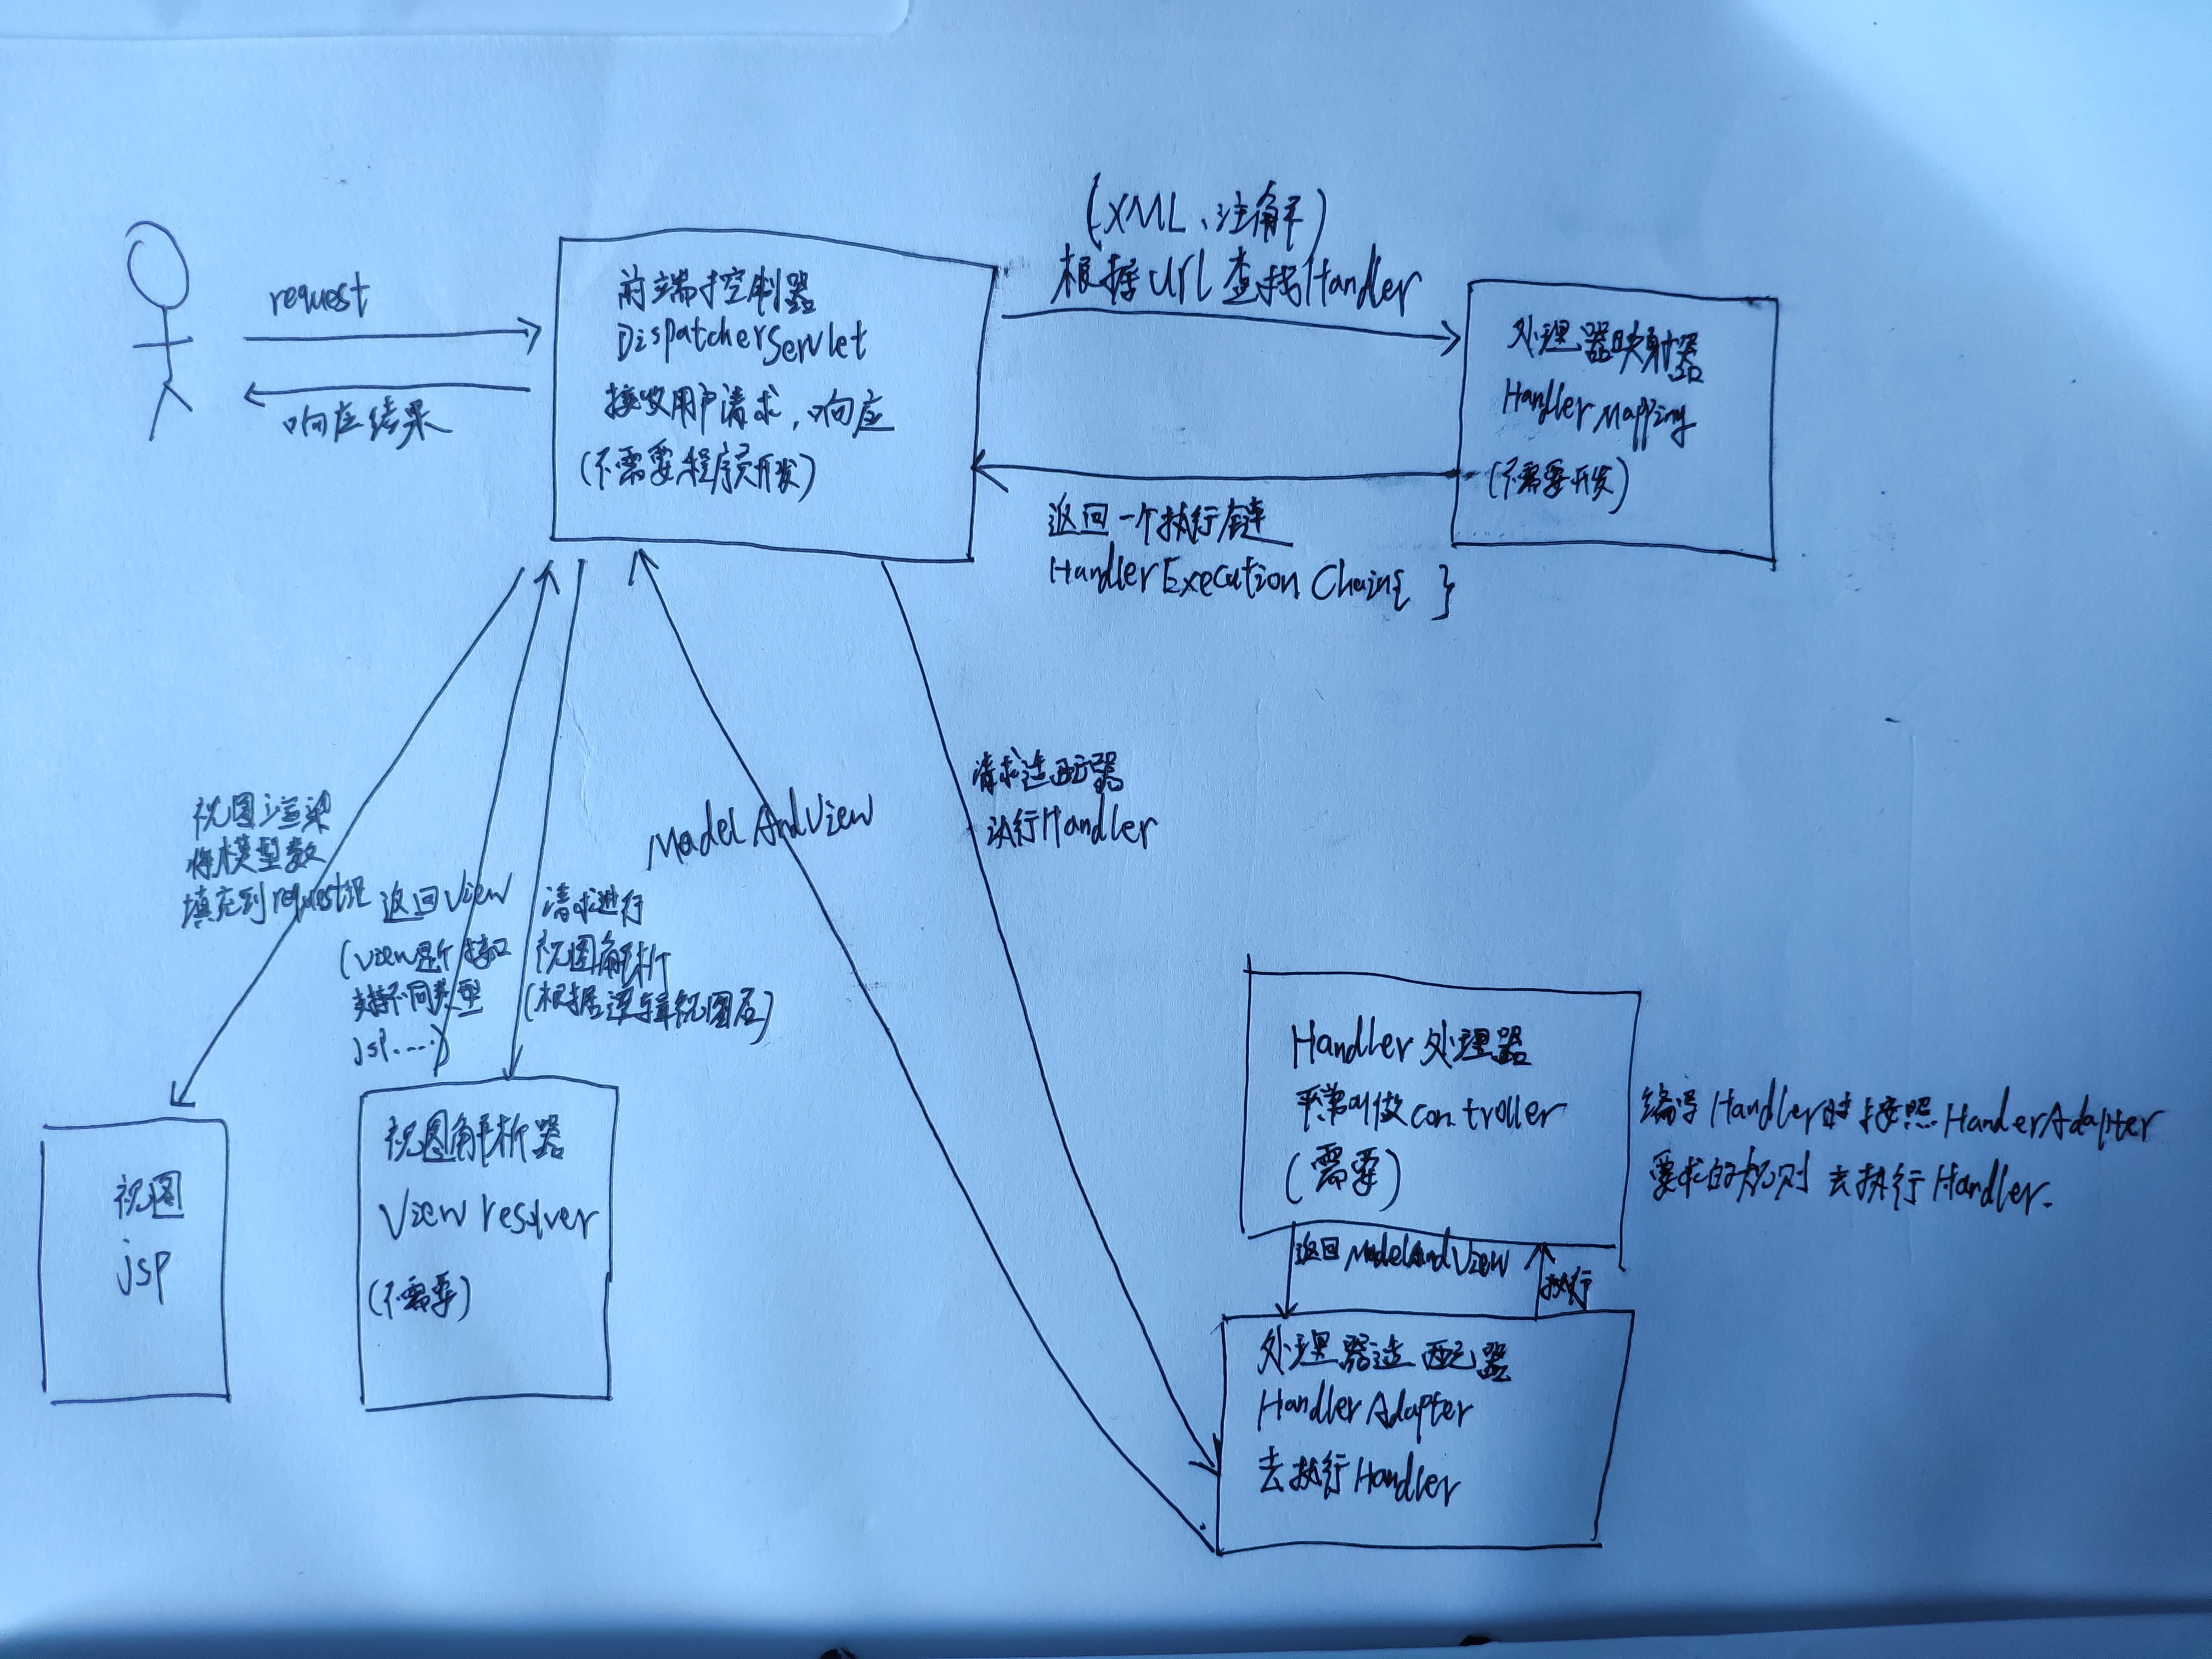 request
响应结果
前端控制器
DispatcherServlet
接收用户请求,响应
(不需要程序员开发)
(XML、注解)
根据url查找Handler
处理器映射器
HandlerMapping
(不需要开发)
返回一个执行链
HandlerExecutionChain{ }
视图渲染
将模型数
填充到request
返回View
(View是个接口
支持不同类型
jsp....)
请求进行
视图解析
(根据逻辑视图名)
ModelAndView
请求适配器
执行Handler
视图
jsp
视图解析器
View resolver
(不需要)
Handler处理器
平常叫做controller
(需要)
编写Handler时按照HanderAdapter
要求的规则去执行Handler.
返回ModelAndView
执行
处理器适配器
HandlerAdapter
去执行Handler